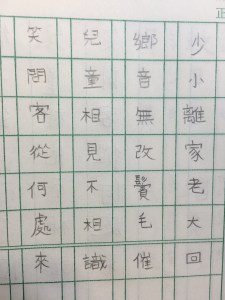 少小離家老大回
鄉音無改鬢毛催
兒童相見不相識
笑問客從何處來